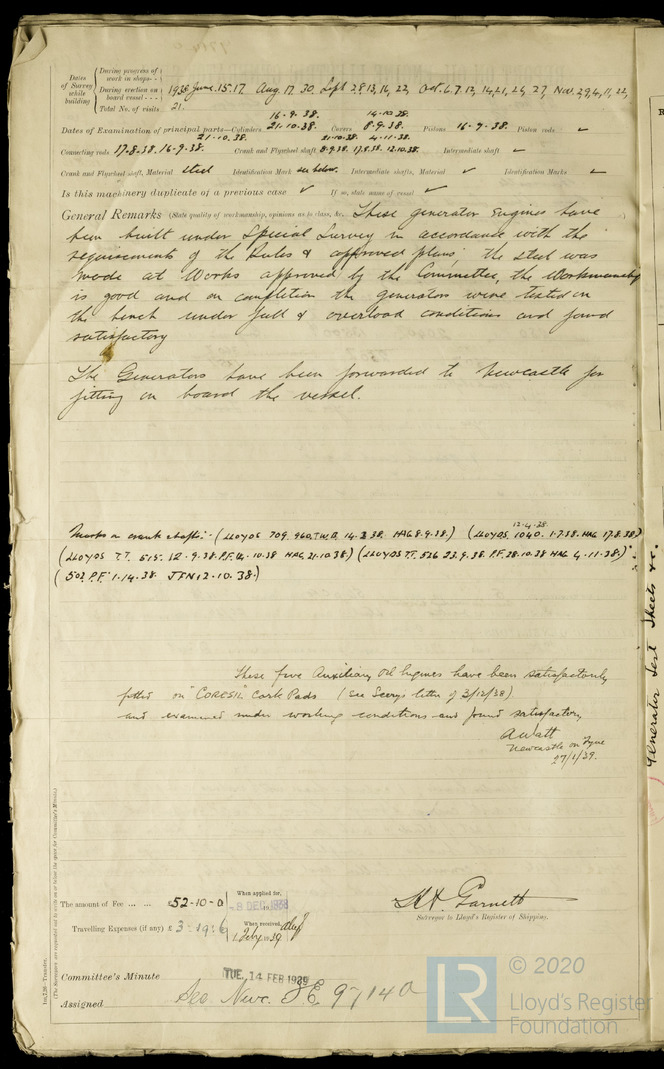 Dates of Survey while building
During progress of work in shops - -
During erection on board vessel - - -
Total No. of visits
1938 June. 15. 17. Aug. 17. 30. Sept 2.8.13,14,22, Oct. 6.7.12,14,21,24,27, Nov. 2,9,4,11,22,
21.
Dates of Examination of principal parts—Cylinders 16-9.38. 21-10.38. Covers 14-10.38. 8-9.38. Pistons 16-9-38. Piston rods ✓
Connecting rods 17.8.38. 16-9.38. 21-10.38. Crank and Flywheel shaft 21-10-38. 4-11-38. 8-9.38. 17.8.38. 12.10.38. Intermediate shaft ✓
Crank and Flywheel shaft, Material steel Identification Mark see below. Intermediate shafts, Material ✓ Identification Marks ✓
Is this machinery duplicate of a previous case ✓ If so, state name of vessel ✓
General Remarks (State quality of workmanship, opinions as to class, &c. These generator Engines have
been built under Special Survey in accordance with the
requirements of the Rules & approved plans, the steel was
made at Works approved by the Committee, the Workmanship
is good and on completion the generators were tested on
the bench under full & overload conditions and found
satisfactory
The Generators have been forwarded to Newcastle for
fitting on board the vessel.
Marks on crank shafts:- (LLOYDS 709. 960. T.W.D. 14.3.38. HAG. 8.9.38.) (LLOYDS 1040. 12-4-38. 1.7.38. HAG. 17.8.38)
(LLOYDS T.T. 515. 12.9.38. P.F. 14.10.38 HAG. 21.10.38) (LLOYDS T.T. 526 23.9.38. P.F. 28.10.38 HAG. 4.11.38)
(502 P.F. 1.14.38. JFN 12.10.38.)
These five Auxiliary Oil Engines have been satisfactorily
fitted on "CORESIL" Cork Pads (see Secrys letter of 2/12/38)
and examined under working conditions and found satisfactory
A Watt
Newcastle on Tyne
27/1/39.
Generator Test Sheets &c.
The amount of Fee ... ... £52-10-0
When applied for,
-8 DEC 1938
Travelling Expenses (if any) £ 3-19-6
When received,
1 Feby 1939
Surveyor to Lloyd's Register of Shipping.
Committee's Minute TUE. 14 FEB 1939
Assigned See Newc. J.E. 97140
© 2020
LR
Lloyd's Register
Foundation